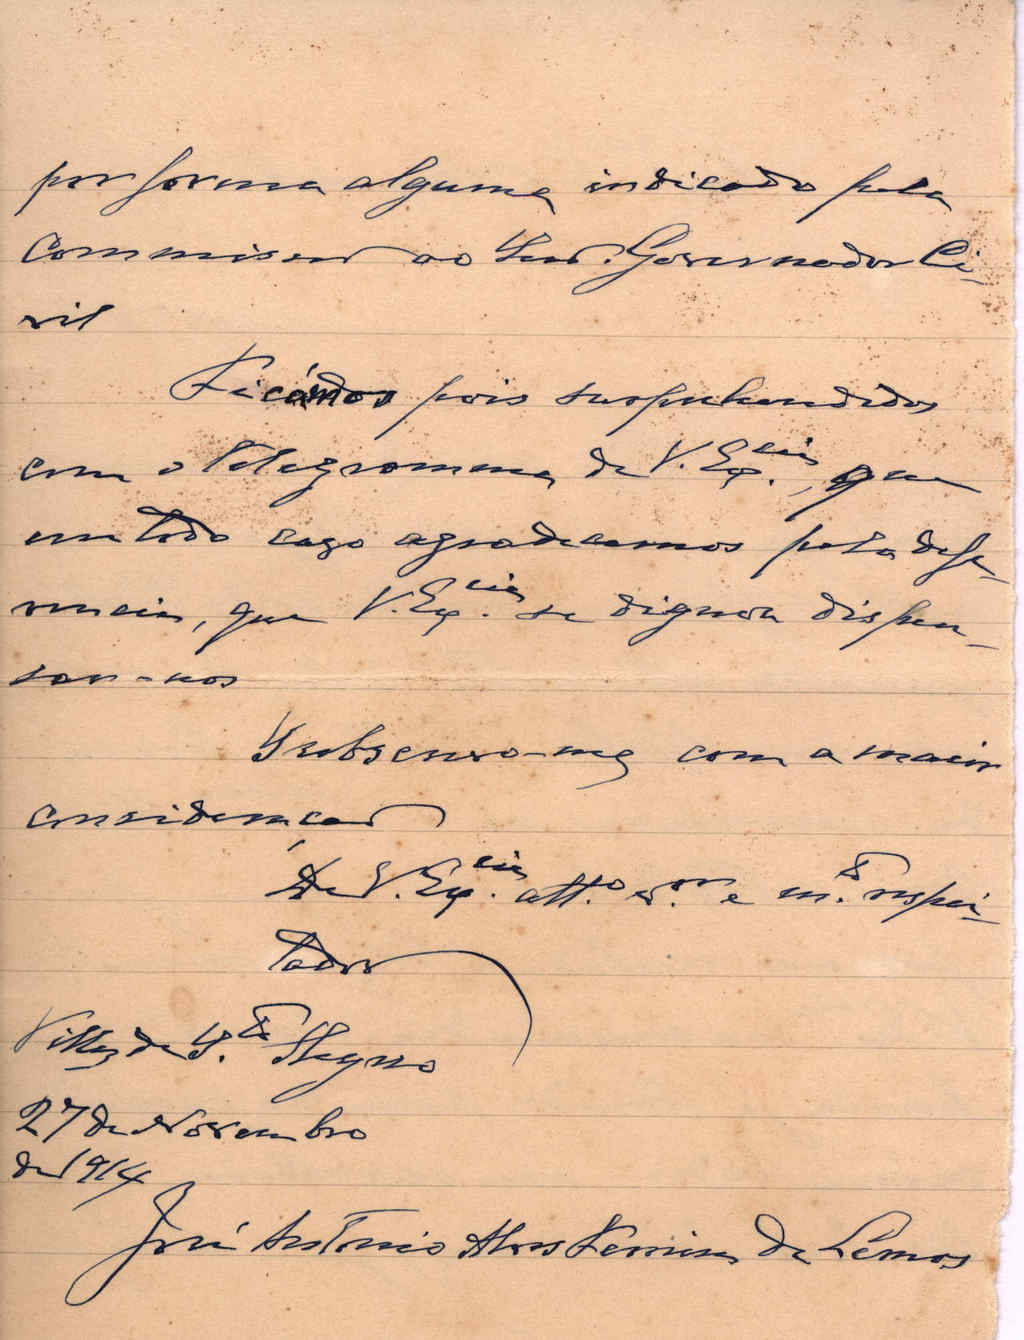 por forma alguma indicado pela
Commissão ao Snr. Governador Ci-
vil
Ficámos pois surprehendidos
com o telegramma de V. Ex.cia, que
em todo caso agradecemos pela defe-
rencia, que V. Ex.cia se dignou dispen-
sar-nos
Subscrevo-me com a maior
consideração
De V. Ex.cia att.o v.or e m.to respei-
tador
Villa de S.ta Regno
27 de Novembro
de 1914
José Antonio Alves Ferreira de Lemos